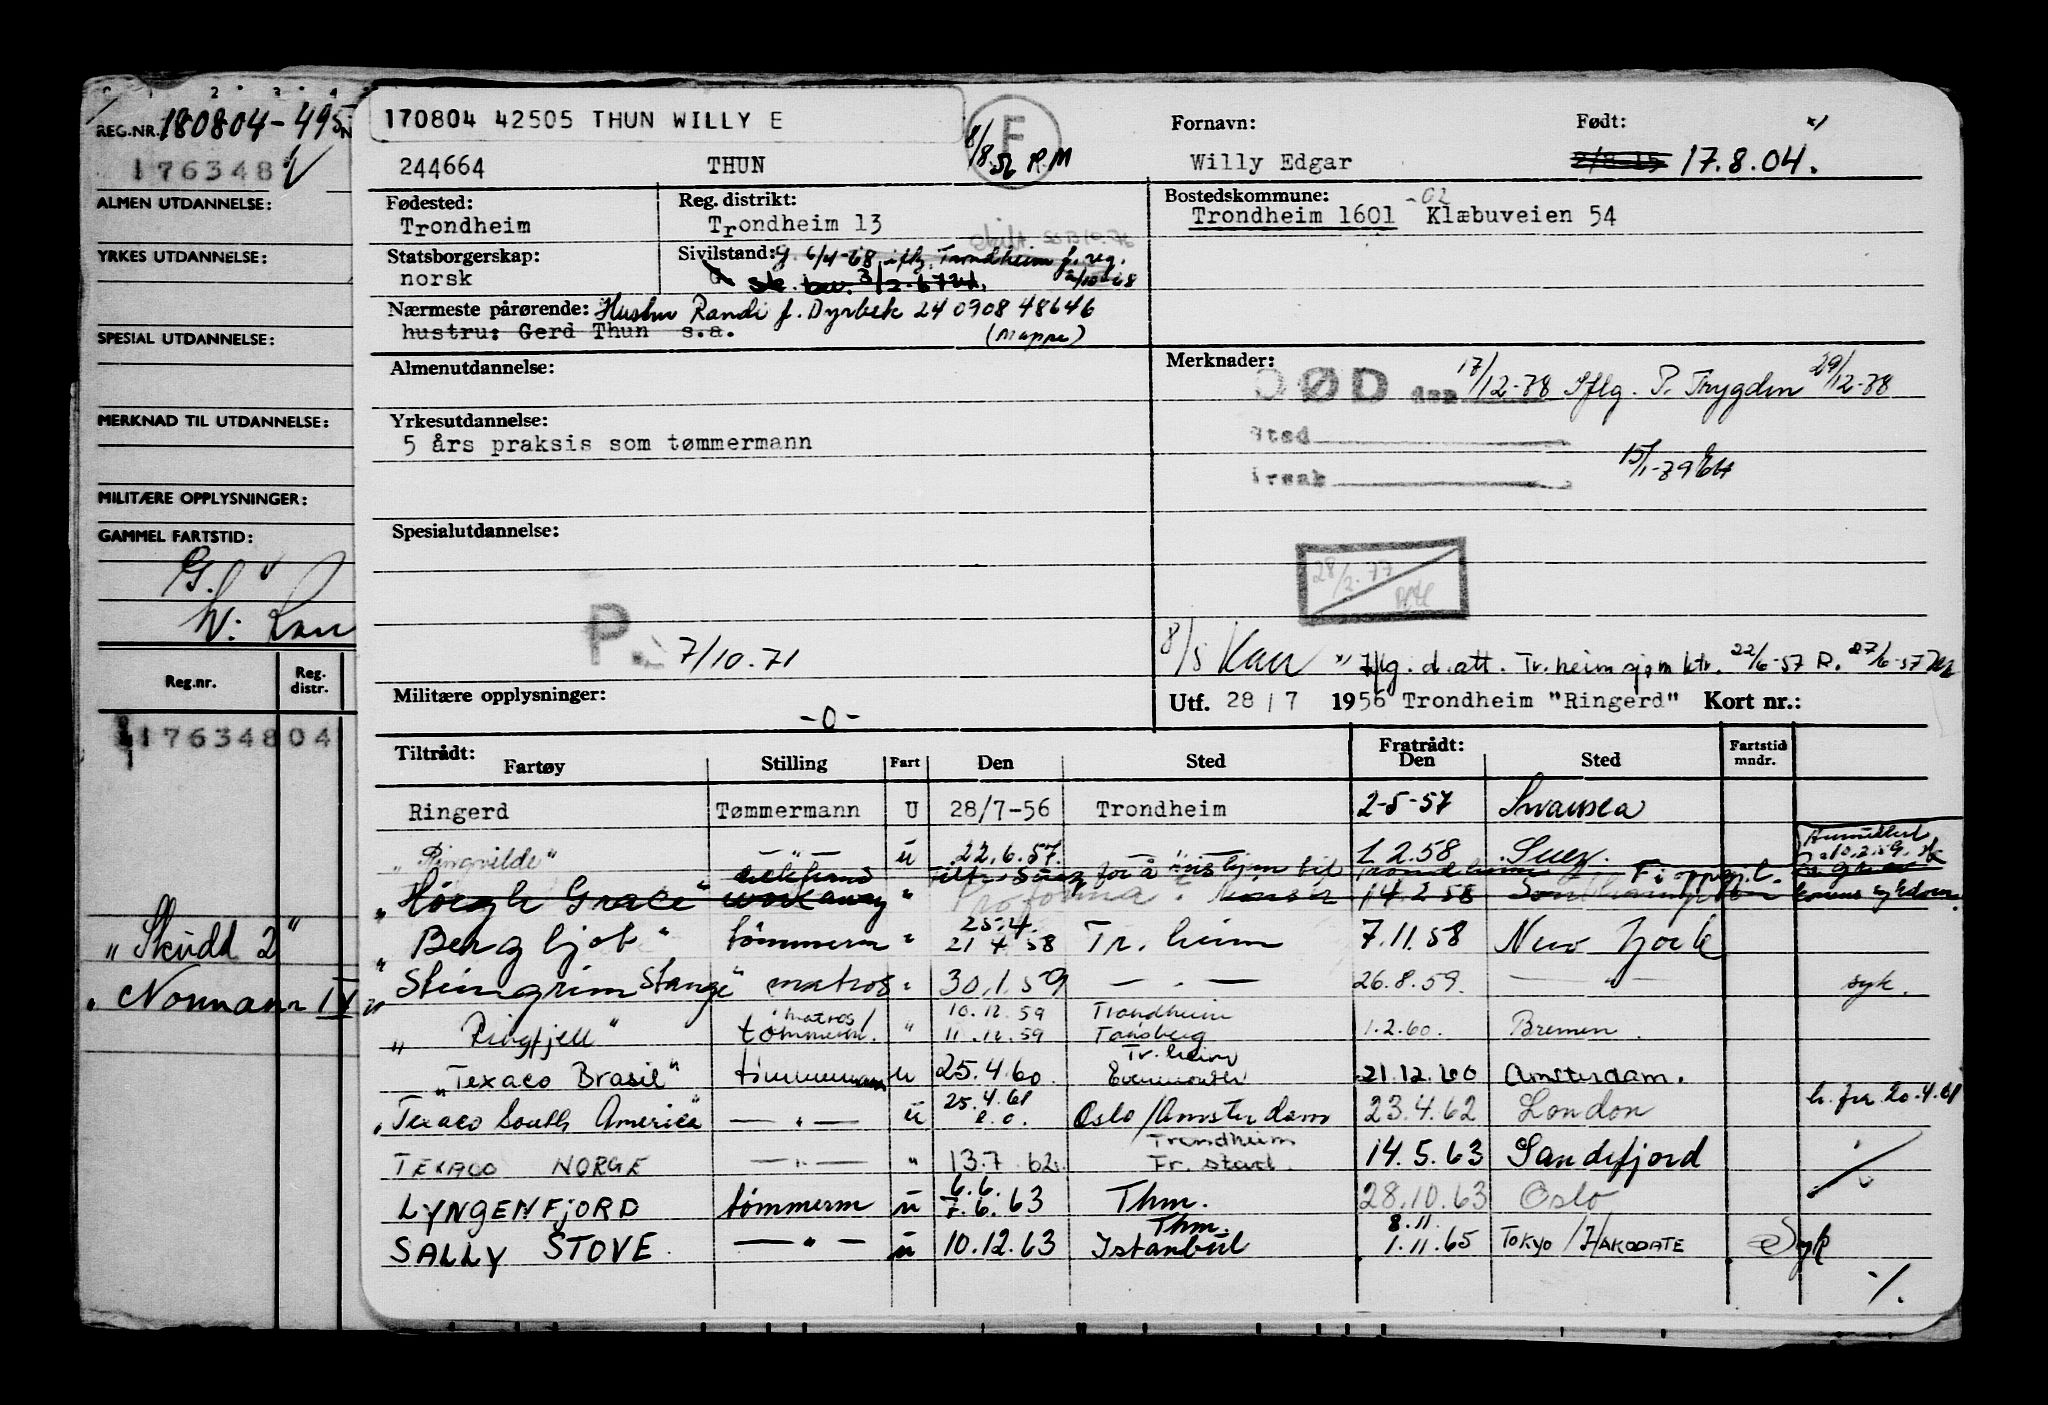 REG.NR. 180804-495
176348
ALMEN UTDANNELSE:
YRKES UTDANNELSE:
SPESIAL UTDANNELSE:
MERKNAD TIL UTDANNELSE:
MILITÆRE OPPLYSNINGER:
GAMMEL FARTSTID:
G.
W:
Reg.nr. Reg. distr.
17634804
"Skudd 2"
"Normann IV"
170804 42505 THUN WILLY E
F
8/8.56 R.M
Fornavn: Født:
244664 THUN Willy Edgar 17.8.04.
Fødested: Reg. distrikt: Bostedskommune: -02
Trondheim Trondheim 13 Trondheim 1601 Klæbuveien 54
Statsborgerskap: Sivilstand: G. 6/4-68 iflg. Trondheim f. reg.
norsk G 2/10-68
Nærmeste pårørende: Hustru Randi f. Dyrbek 240908 48646
hustru: Gerd Thun s.a. (mappe)
Almenutdannelse: Merknader:
DØD den 17/12-78 Iflg. P. Trygden 29/12-78
Yrkesutdannelse: Sted
5 års praksis som tømmermann 15/1-79
Årsak
Spesialutdannelse:
28/2-77
P. 7/10.71
8/5 Kan x) Iflg. d. att. Tr.heim sjøm ktr. 22/6-57 R. 27/6-57
Militære opplysninger: Utf. 28/7 1956 Trondheim "Ringerd" Kort nr.:
-0-
Tiltrådt: Fratrådt: Fartstid
Fartøy Stilling Fart Den Sted Den Sted mndr.
Ringerd Tømmermann U 28/7-56 Trondheim 2-5-57 Swansea
"Ringvilde" — " — u 22.6.57. 1.2.58 Suez.
"Høegh Grace" workaway " Proforma 14.2.58
"Bergljot" tømmerm " 25.4. 21 4 58 Tr. heim 7.11.58 New York
"Steingrim Stange" matros " 30.1.59 — " — 26.8.59. — " — syk.
"Ringfjell" matros/ tømmerm. " 10.12.59 11.12.59 Trondheim Tønsberg 1.2.60. Bremen.
"Texaco Brasil" tømmermann u 25.4.60. Tr. heim 21.12.60 Amsterdam.
"Texaco South America" — " — u 25.4.61 Oslo/Amsterdam 23.4.62 London h. fra 20.4.61
TEXACO NORGE — " — " 13.7.62. Trondheim Fr. stad. 14.5.63 Sandefjord
LYNGENFJORD tømmerm u 6.6. 7.6.63 Thm. 28.10.63 Oslo
SALLY STOVE — " — u 10.12.63 Thm. Istanbul 8.11. 1.11.65 TOKYO/HAKODATE Syk
%.